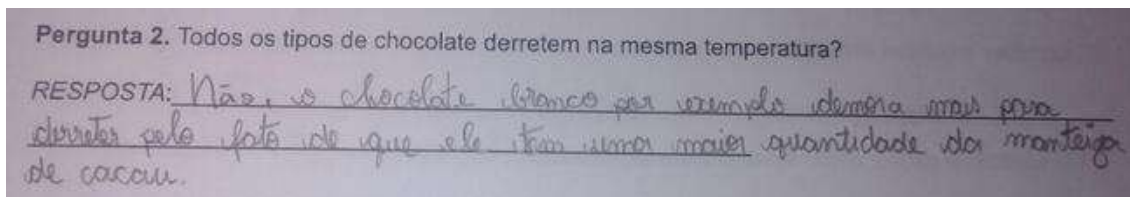 Pergunta 2. Todos os tipos de chocolate derretem na mesma temperatura?
RESPOSTA: Não, o chocolate branco por exemplo demora mais para
derreter pelo fato de que ele tem uma maior quantidade da manteiga
de cacau.